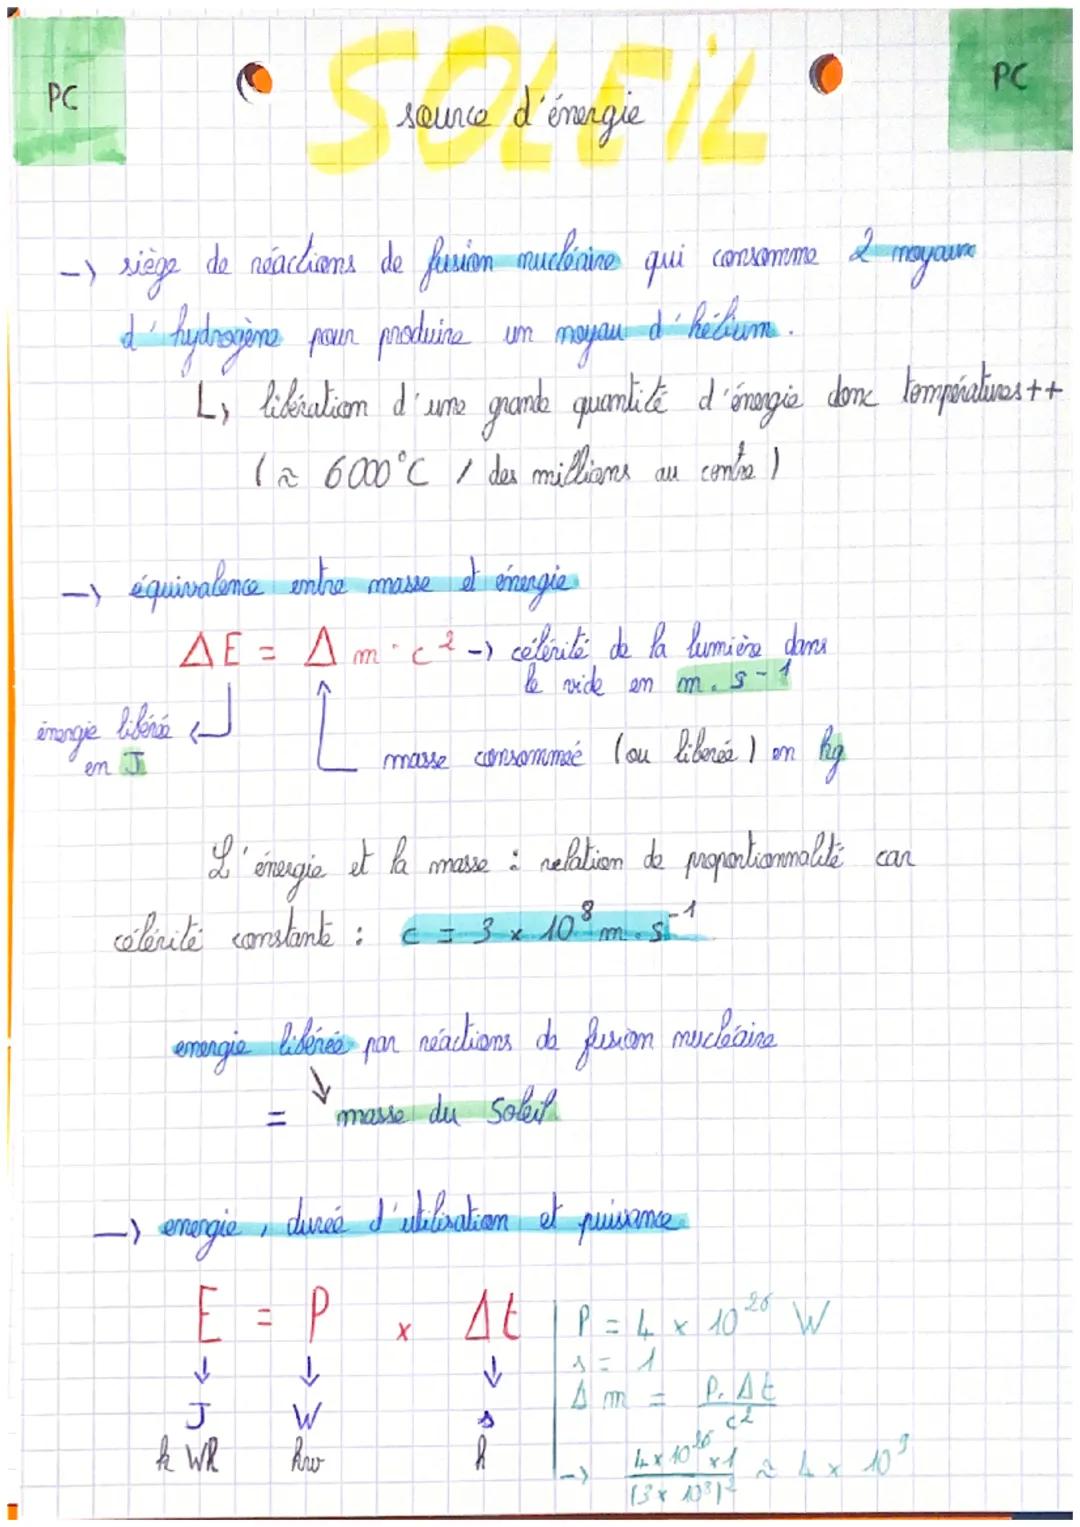 PC
SOLEIL
PC
source d'énergie
-> siège de réactions de fusion nucléaire qui consomme 2 noyaux
d'hydrogène pour produire un noyau d'hélium.
L> libération d'une grande quantité d'énergie donc températures ++
(≈ 6000°C / des millions au centre)
-> équivalence entre masse et énergie
ΔE = Δm · c² -> célérité de la lumière dans
le vide en m.s-1
énergie libérée
en J
masse consommée (ou liberée) en kg
L'énergie et la masse : relation de proportionnalité car
célérité constante : c = 3 x 10⁸ m.s⁻¹
energie libérée par réactions de fusion nucléaire
= ↓ masse du Soleil
-> energie, durée d'utilisation et puissance
E = P x Δt
↓ ↓ ↓
J W s
kWh kw h
P = 4 x 10²⁶ W
s = 1
Δm = P.Δt / c²
-> 4 x 10²⁶ x 1 / (3 x 10⁸)² ≈ 4 x 10⁹